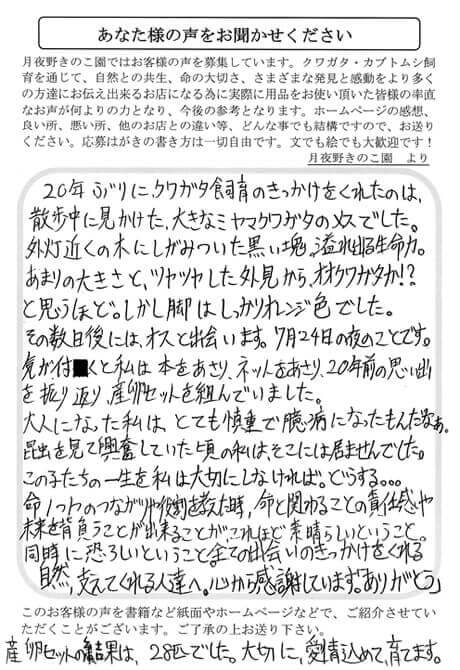 あなた様の声をお聞かせください
月夜野きのこ園ではお客様の声を募集しています。クワガタ・カブトムシ飼
育を通じて、自然との共生、命の大切さ、さまざまな発見と感動をより多く
の方達にお伝え出来るお店になる為に実際に用品をお使い頂いた皆様の率直
なお声が何よりの力となり、今後の参考となります。ホームページの感想、
良い所、悪い所、他のお店との違い等、どんな事でも結構ですので、お送り
ください。応募はがきの書き方は一切自由です。文でも絵でも大歓迎です！
月夜野きのこ園　より
20年ぶりに、クワガタ飼育のきっかけをくれたのは、
散歩中に見かけた、大きなミヤマクワガタのメスでした。
外灯近くの木にしがみついた黒い塊。溢れ出る生命力。
あまりの大きさと、ツヤツヤした外見から、オオクワガタか!?
と思うほど。しかし脚はしっかりオレンジ色でした。
その数日後には、オスと出会います。7月24日の夜のことです。
気が付くと私は本をあさり、ネットをあさり、20年前の思い出
を振り返り、産卵セットを組んでいました。
大人になった私は、とても慎重で臆病になったもんだなぁ。
昆虫を見て興奮していた頃の私は、そこには居ませんでした。
この子たちの一生を私は大切にしなければ。どうする。。。
命1つ1つのつながりや役割を教えた時、命と関わることの責任感や
未来を背負うことが出来ることが、これほど素晴らしいということ。
同時に恐ろしいということ。全ての出会いのきっかけをくれる
自然、支えてくれる人達へ。心から感謝しています。ありがとう」
このお客様の声を書籍など紙面やホームページなどで、ご紹介させてい
ただくことがございます。ご了承の上お送り下さい。
産卵セットの結果は、28匹でした。大切に、愛情込めて、育てます。